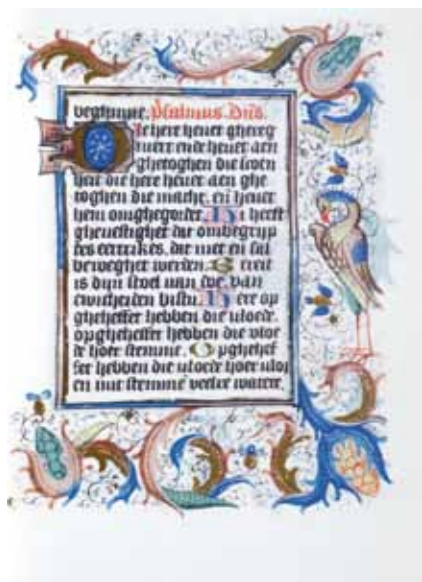 beghinne. psalmus. dns.
Die here hevet ghereg
niert ende hevet aen
ghetoghen die scoen
heit die here hevet aen ghe
toghen die macht. en hevet
hem omghegordet. Hi heeft
ghevestighet dat ombegrijp
des eertrikes. dat niet en sal
beweghet werden. Gereit
is dijn stoel van doe. van
ewicheiden bistu. Here op
gheheffet hebben die vloede.
opgheheffet hebben die vloe
de hoer stemme. Opghehef
fet hebben die vloede hoer vloi
en mit stemme veelre watere.